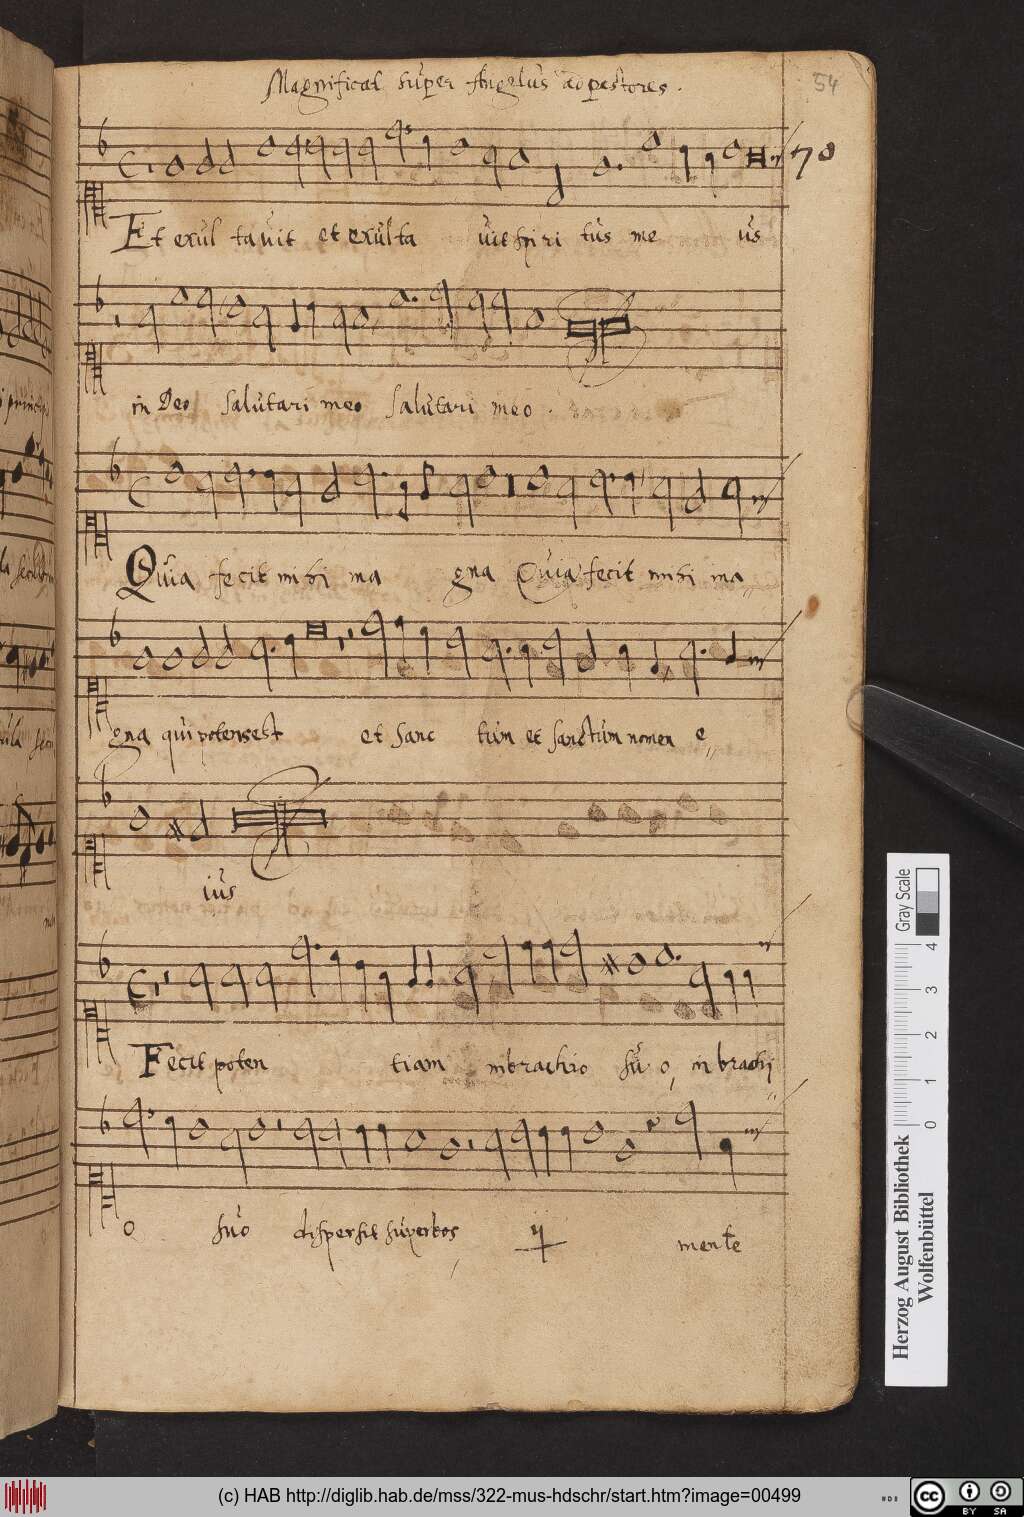 Magnificat super Angelus ad pastores.
54
70
Et exul tavit et exulta vit spiri tus me us
in Deo salutari meo salutari meo.
Quia fecit mihi ma gna Quia fecit mihi ma
gna qui potens est et sanc tum et sanctum nomen e
ius
Fecit poten tiam in brachio su o, in brachi
o suo dispersit superbos, ij mente
Herzog August Bibliothek
Wolfenbüttel
Gray Scale
0 1 2 3 4
(c) HAB http://diglib.hab.de/mss/322-mus-hdschr/start.htm?image=00499
cc BY SA